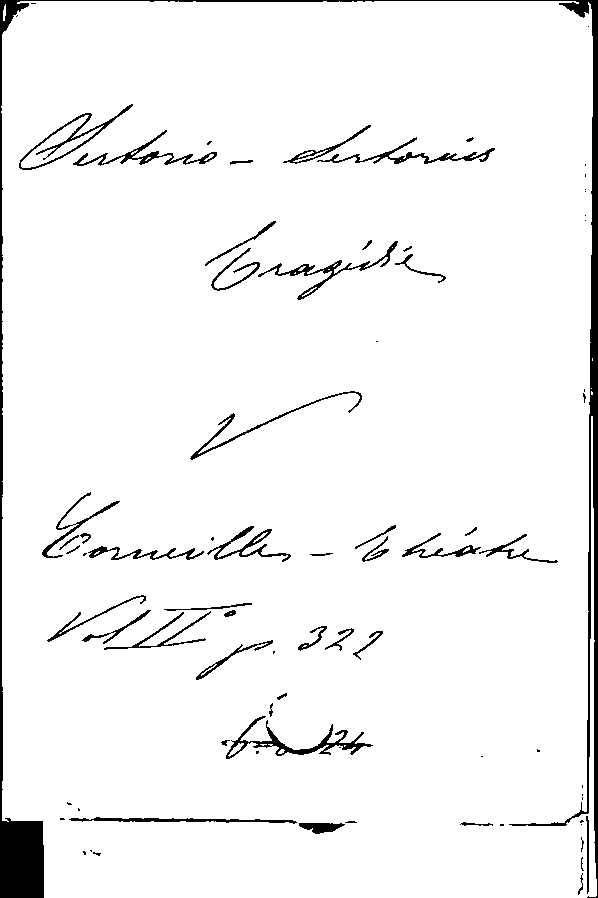 Sertorio - Sertorius
Tragédie
V
Corneille - Théatre
Vol IIº p. 322
24